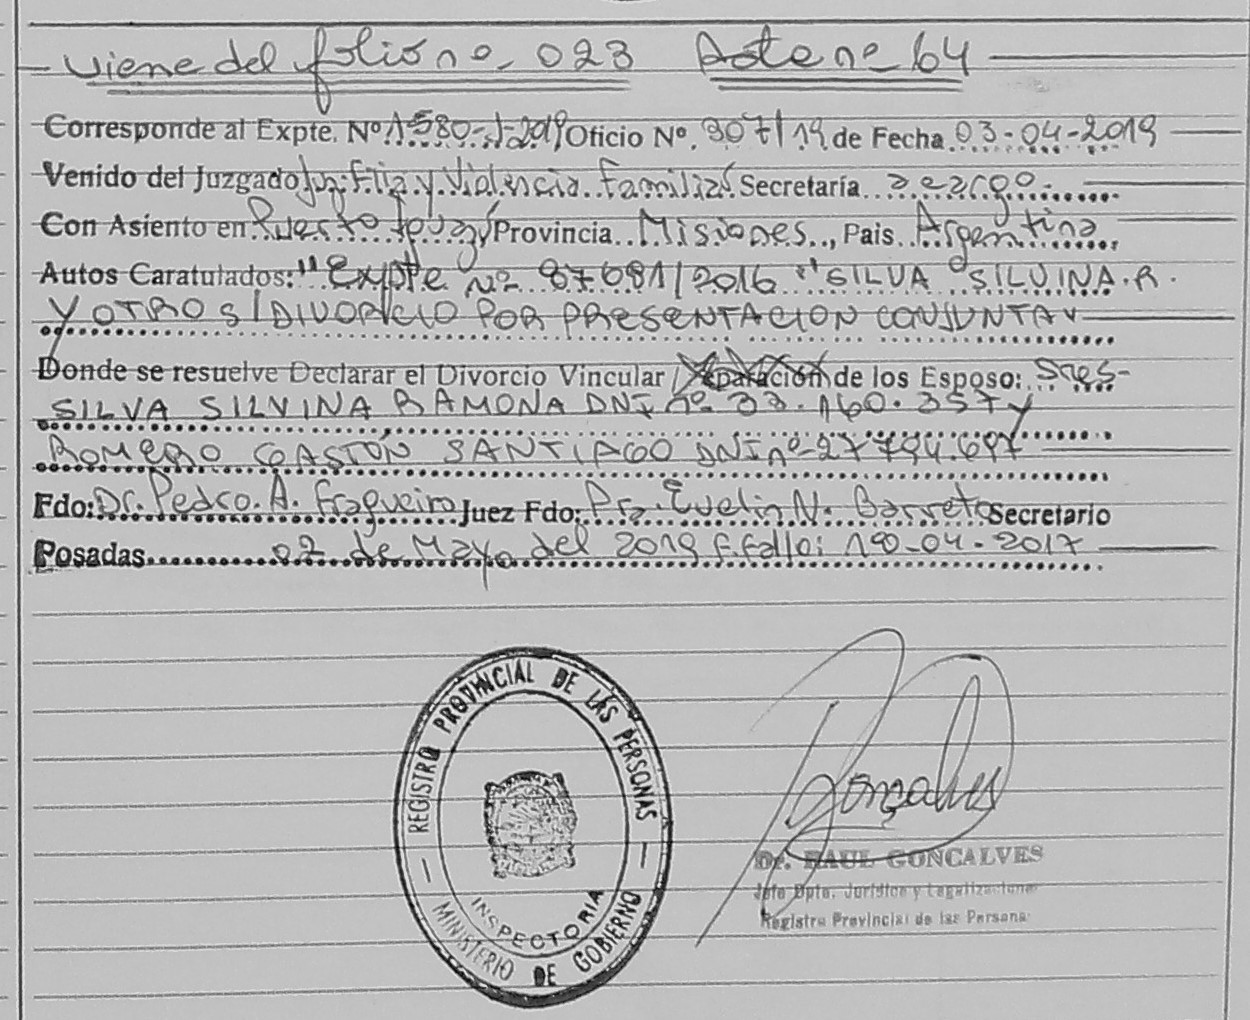 Viene del folio nº 023 Acta nº 64
Corresponde al Expte. Nº 1580-J-2019 Oficio Nº. 307/19 de Fecha 03-04-2019
Venido del Juzgado Juz. Flia. y Violencia Familiar Secretaría a cargo
Con Asiento en Puerto Iguazú Provincia Misiones, Pais Argentina
Autos Caratulados: "Expte Nº 87681/2016 "SILVA SILVINA.R.
Y OTRO S/DIVORCIO POR PRESENTACION CONJUNTA
Donde se resuelve Declarar el Divorcio Vincular / Separación de los Esposo: Sres-
SILVA SILVINA RAMONA DNI nº 33.160.357 y
ROMERO GASTÓN SANTIAGO DNI nº 27.794.697
Fdo: Dr. Pedro. A. Fragueiro Juez Fdo: Dra. Evelin N. Barreto Secretario
Posadas 02 de Mayo del 2019 F. Fallo: 10-04-2017
REGISTRO PROVINCIAL DE LAS PERSONAS
INSPECTORIA
MINISTERIO DE GOBIERNO
Gonçalves
Dr. RAUL GONCALVES
Jefe Dpto. Jurídico y Legalizaciones
Registro Provincial de las Persona